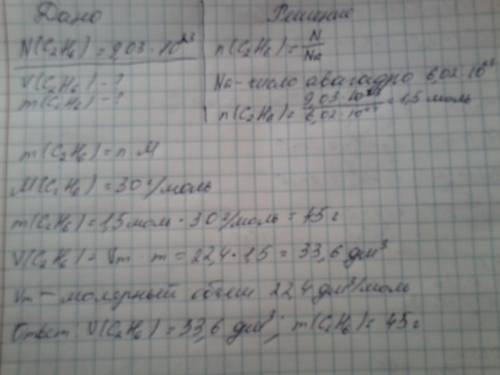 Дано
Решению
N(C₂H₆) = 9,03 · 10²³
n(C₂H₆) = N/Na
V(C₂H₆) - ?
m(C₂H₆) - ?
Na - число авагадро 6,02 · 10²³
n(C₂H₆) = 9,03 · 10²³/6,02 · 10²³ = 1,5 моль
m(C₂H₆) = n · M
M(C₂H₆) = 30 г/моль
m(C₂H₆) = 1,5 мол · 30 г/моль = 45 г
V(C₂H₆) = Vm · m = 22,4 · 1,5 = 33,6 дм³
Vm - молярный объем 22,4 дм³/мол
Ответ: V(C₂H₆) = 33,6 дм³; m(C₂H₆) = 45 г